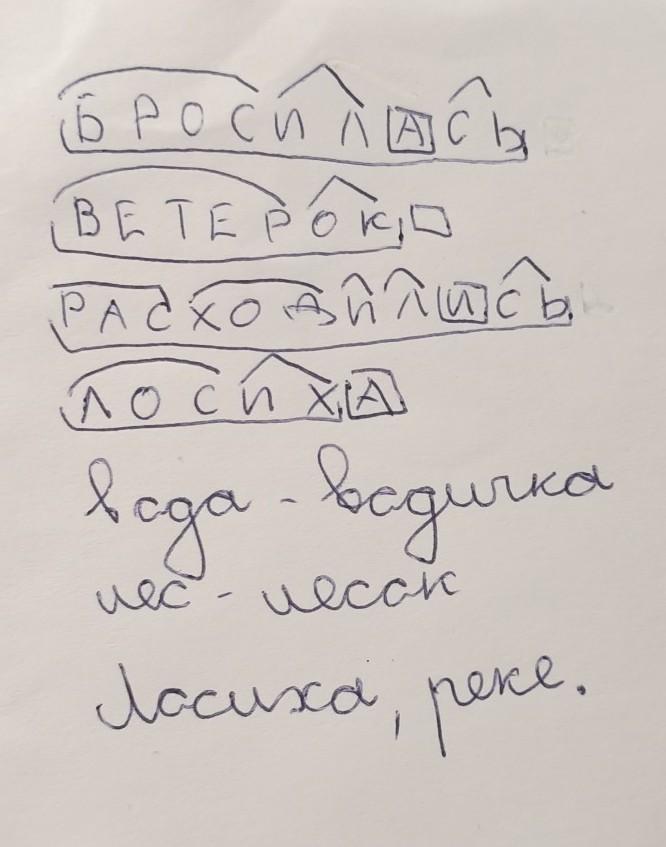 БРОСИЛАСЬ
ВЕТЕРОК
РАСХОДИЛИСЬ
ЛОСИХА
вода - водичка
лес - лесок
Лосиха, реке.